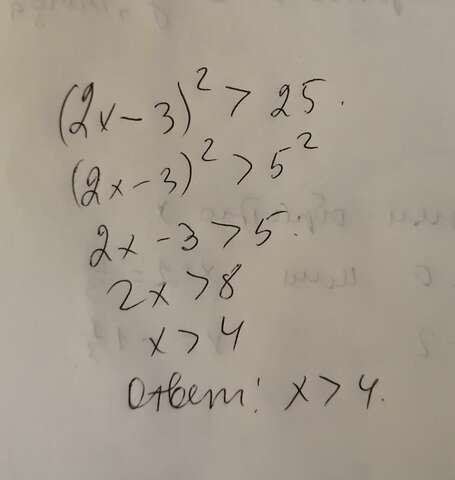 (2x-3)² > 25.
(2x-3)² > 5²
2x-3 > 5.
2x > 8
x > 4
Ответ: x > 4.